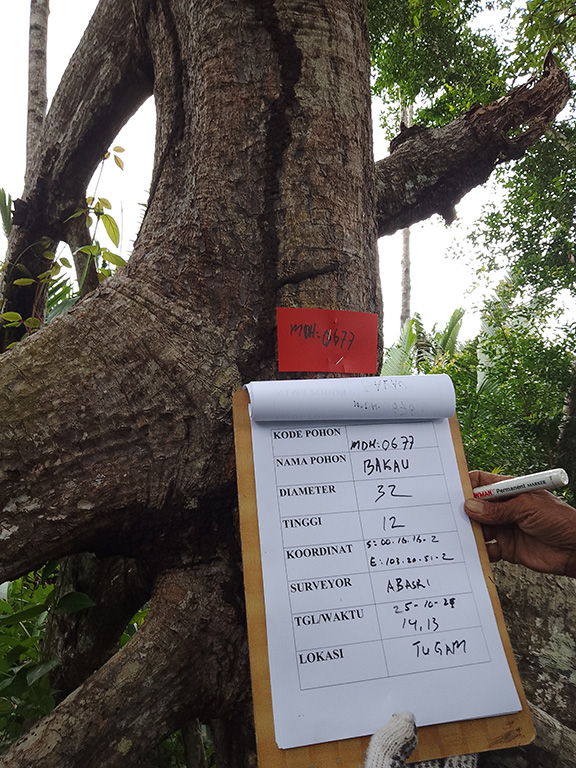 MDH:0677
KODE POHON MDH:0677
NAMA POHON BAKAU
DIAMETER 32
TINGGI 12
KOORDINAT S:00.16.16-2
E:103.20.51-2
SURVEYOR ABASRI
TGL/WAKTU 25-10-25
14,13
LOKASI TUGAM
Permanent MARKER